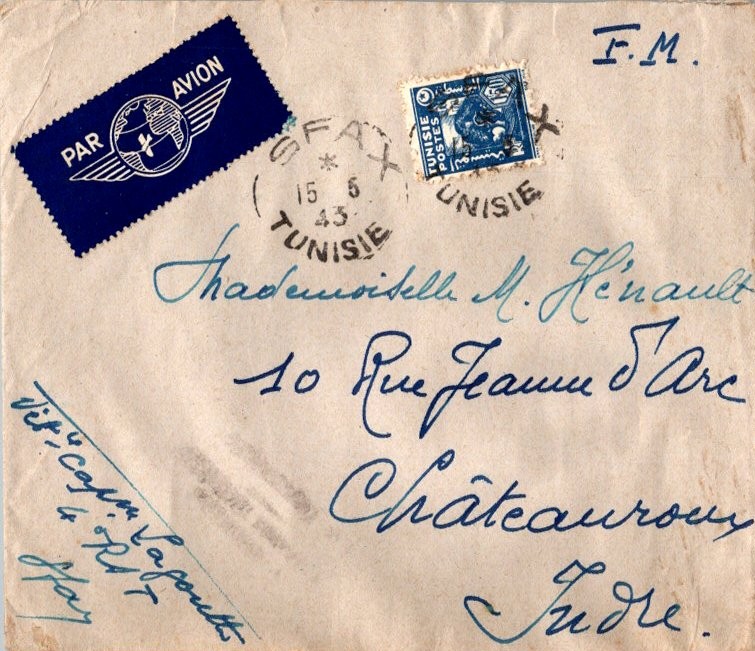 F.M.
PAR AVION
SFAX
15 6
43
TUNISIE
TUNISIE
POSTES
TUNISIE
Mademoiselle M. Hénault
10 Rue Jeanne d'Arc
Châteauroux
Indre.
4
Sfax